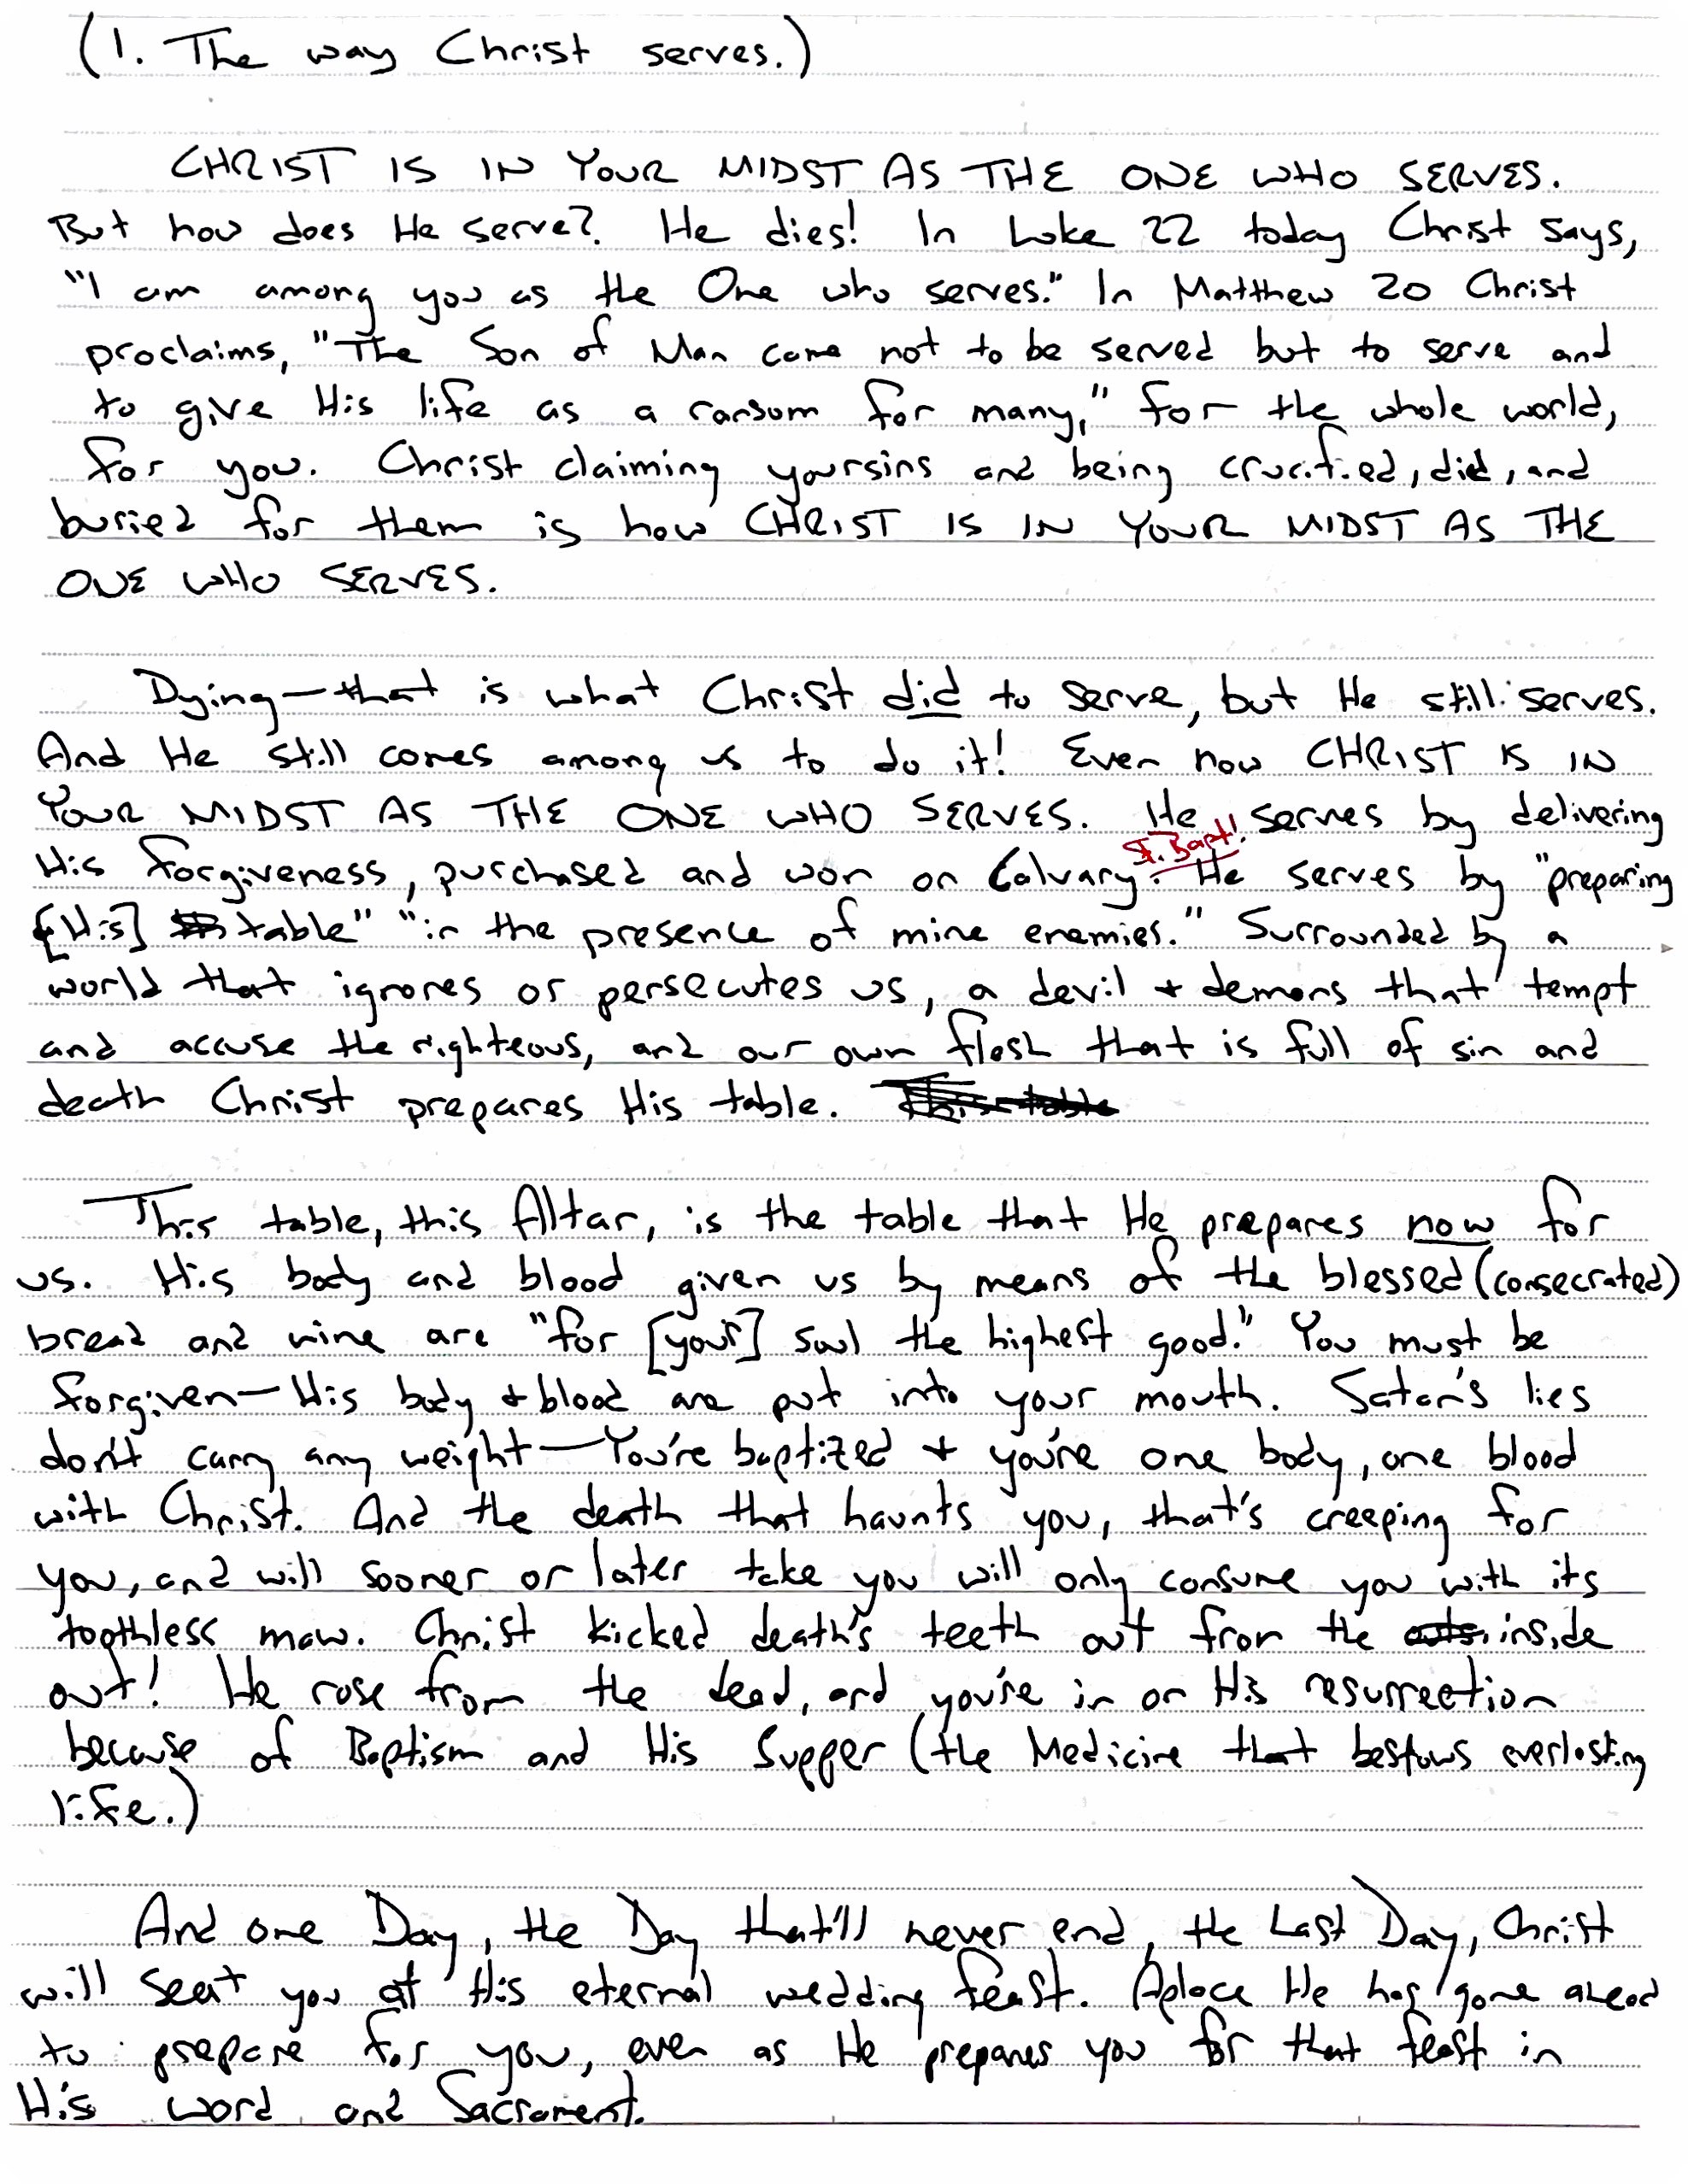 (1. The way Christ serves.)
CHRIST IS IN YOUR MIDST AS THE ONE WHO SERVES.
But how does He serve? He dies! In Luke 22 today Christ says,
"I am among you as the One who serves." In Matthew 20 Christ
proclaims, "The Son of Man came not to be served but to serve and
to give His life as a ransom for many," for the whole world,
for you. Christ claiming your sins and being crucified, died, and
buried for them is how CHRIST IS IN YOUR MIDST AS THE
ONE WHO SERVES.
Dying—that is what Christ did to serve, but He still serves.
And He still comes among us to do it! Even now CHRIST IS IN
YOUR MIDST AS THE ONE WHO SERVES. He serves by delivering
Bapt!
His forgiveness, purchased and won on Calvary. He serves by "preparing
[His] table" "in the presence of mine enemies." Surrounded by a
world that ignores or persecutes us, a devil + demons that tempt
and accuse the righteous, and our own flesh that is full of sin and
death Christ prepares His table.
This table, this Altar, is the table that He prepares now for
us. His body and blood given us by means of the blessed (consecrated)
bread and wine are "for [your] soul the highest good." You must be
forgiven—His body + blood are put into your mouth. Satan's lies
don't carry any weight—You're baptized + you're one body, one blood
with Christ. And the death that haunts you, that's creeping for
you, and will sooner or later take you will only consume you with its
toothless maw. Christ kicked death's teeth out from the inside
out! He rose from the dead, and you're in on His resurrection
because of Baptism and His Supper (the Medicine that bestows everlasting
life.)
And one Day, the Day that'll never end, the Last Day, Christ
will seat you at His eternal wedding feast. A place He has gone ahead
to prepare for you, even as He prepares you for that feast in
His word and Sacrament.